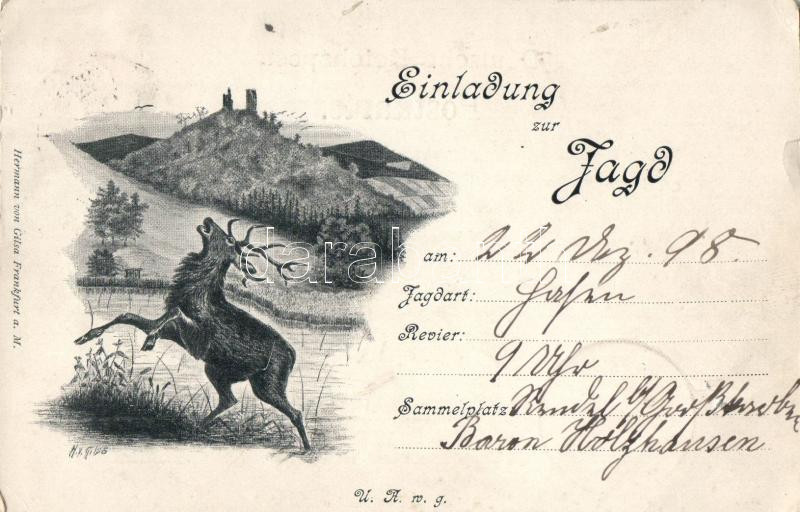 Einladung
zur
Jagd
am: 22 Dez. 98.
Jagdart: Hasen
Revier:
9 Uhr
Sammelplatz: Rendel b/ Großkarben
Baron Holzhausen
U. A. w. g.
Hermann von Gilsa Frankfurt a. M.
H. v. Gilsa
darabanth